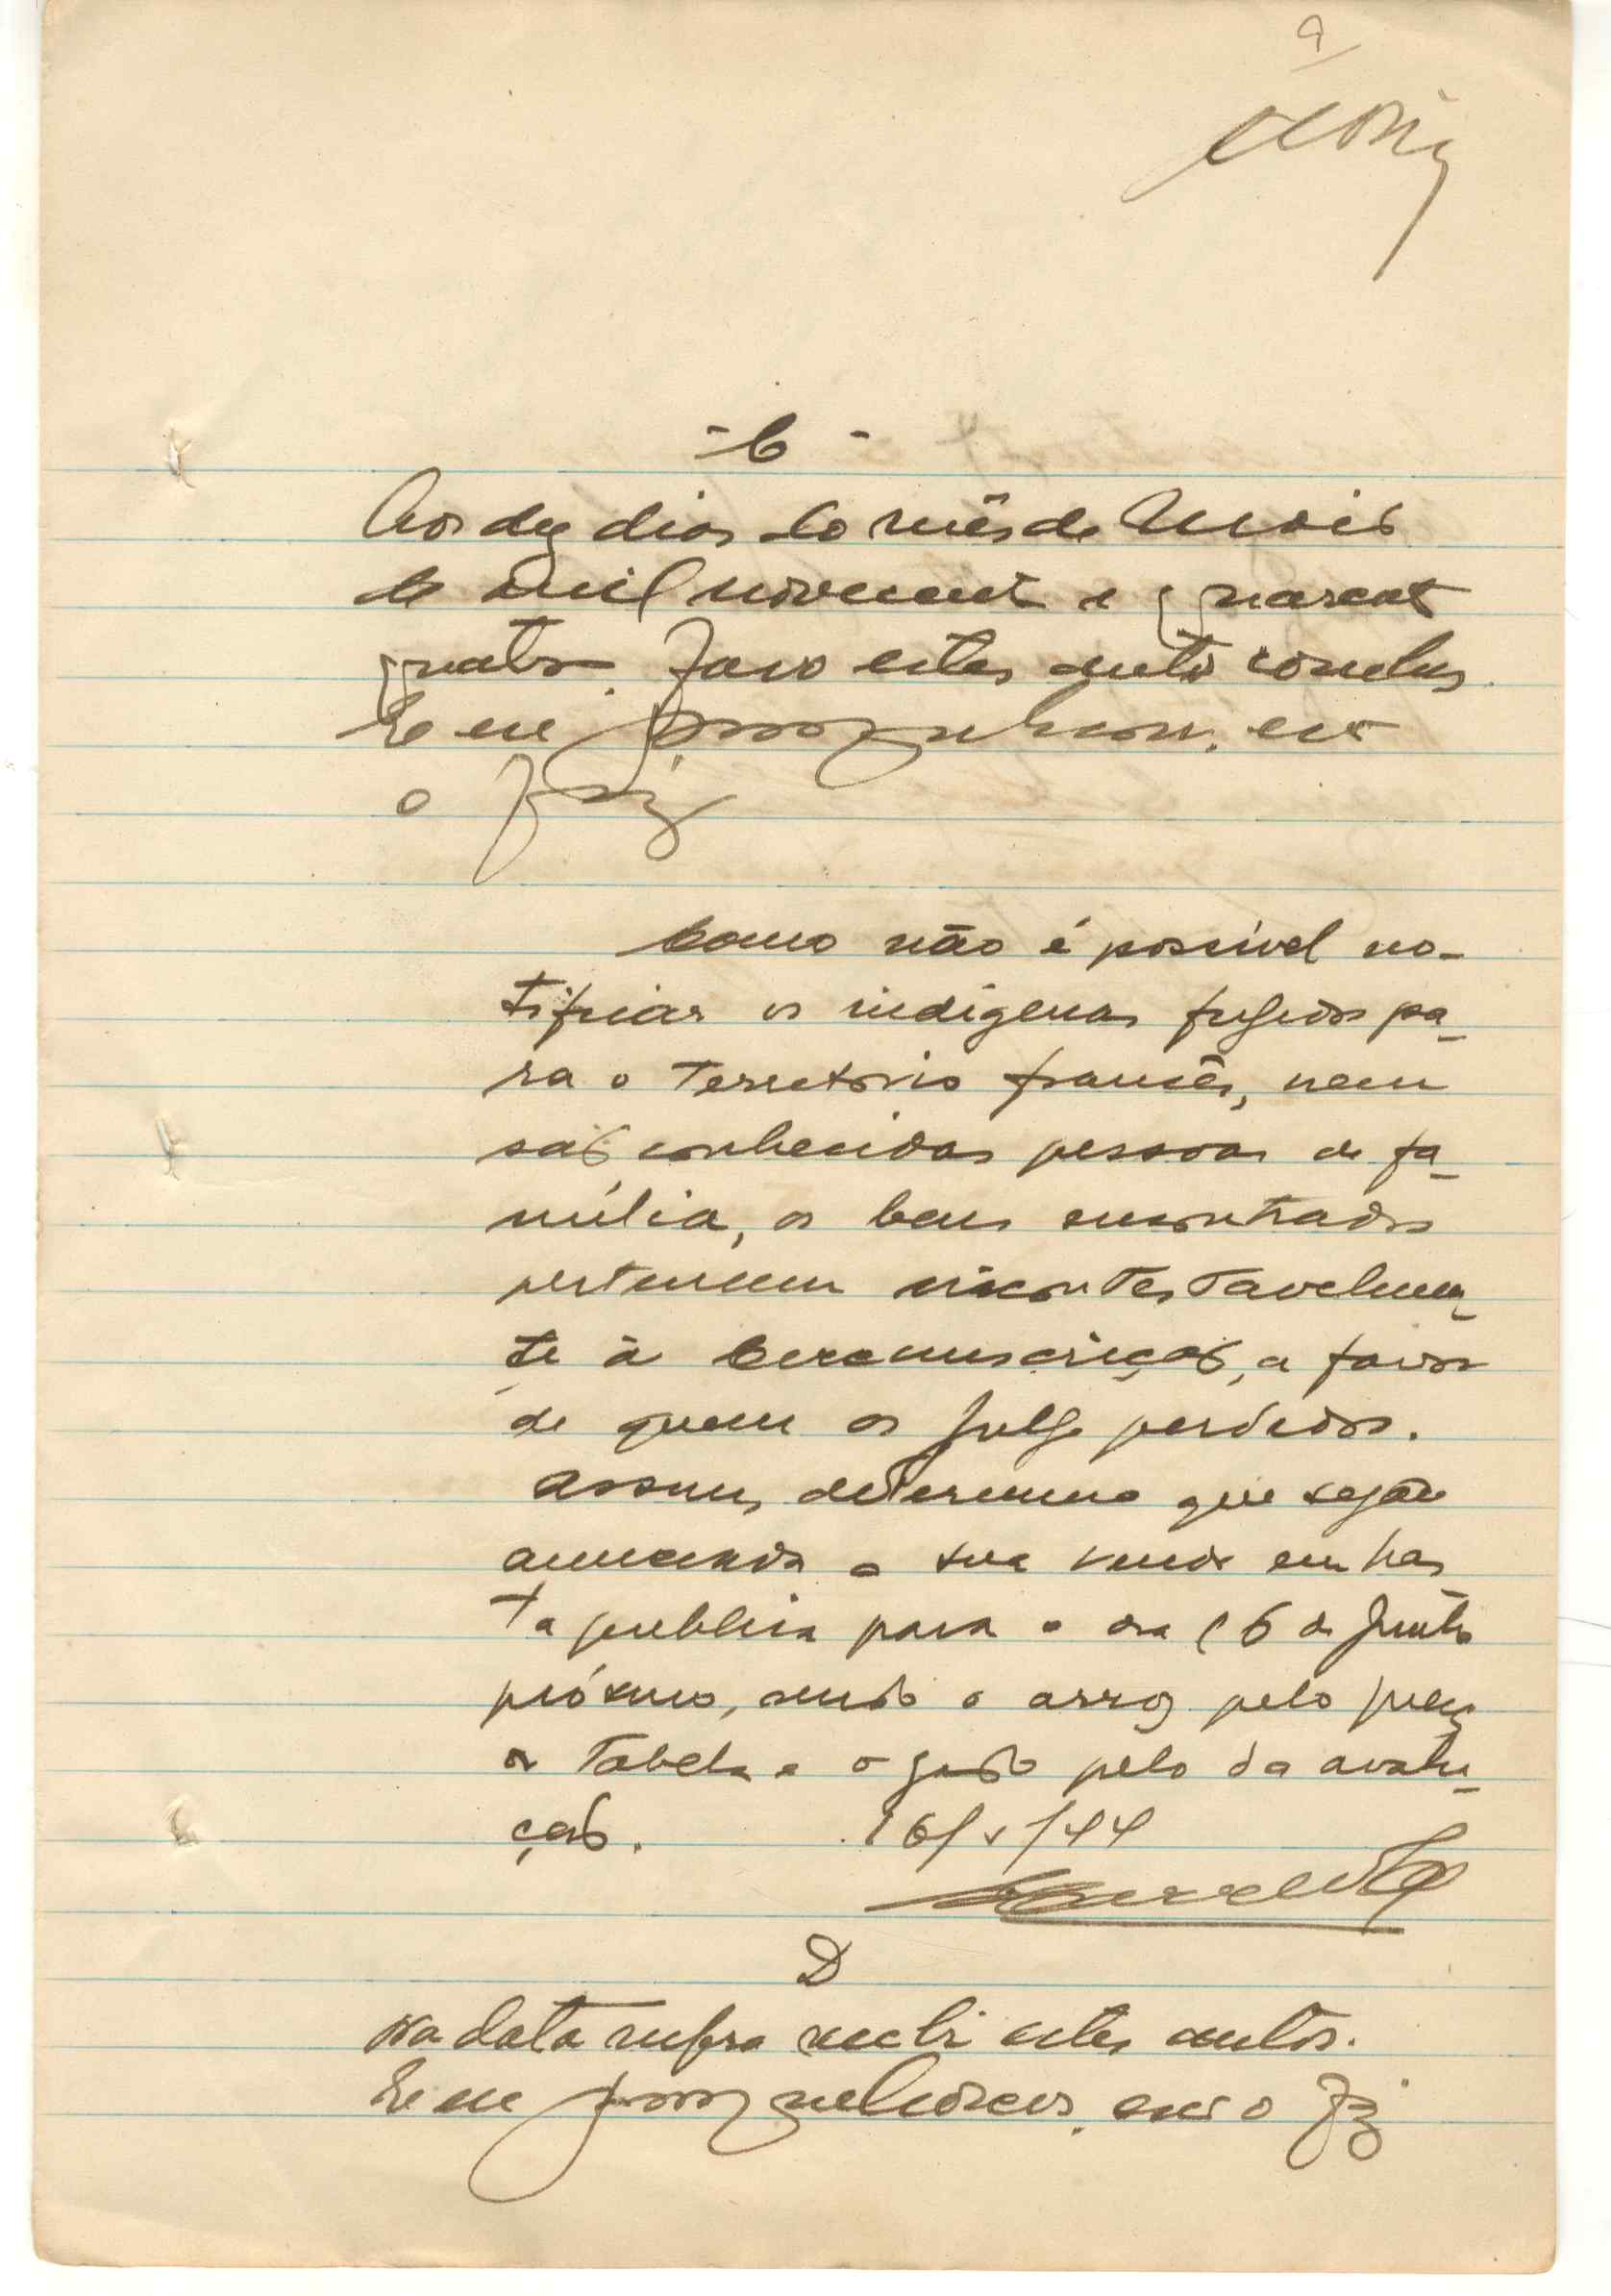 9
- C -
Aos dez dias do mês de Maio
de mil novecentos e quarenta
quatro. Faço estes autos conclusos.
E eu escrivão
o fiz
Como não é possível no-
tificar os indígenas fugidos pa-
ra o Território francês, nem
são conhecidas pessoas de fa-
mília, os bens encontrados
pertencem incontestavelmen-
te à Circunscrição, a favor
de quem os julgo perdidos.
Assim, determino que seja
anunciada a sua venda em has
ta publica para o dia 16 de Junho
próximo, sendo o arroz pelo preço
da Tabela e o gado pelo da avalia-
ção. 16/V/44
D
Na data supra recebi estes autos.
E eu escrivão o fiz